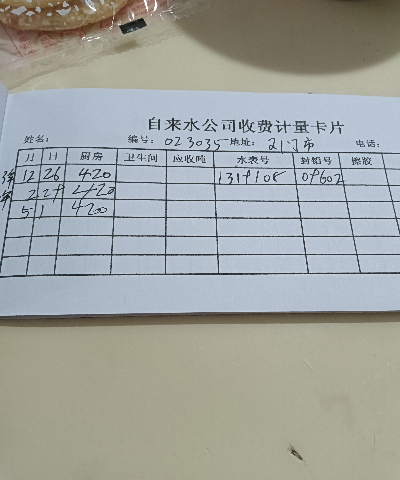 自来水公司收费计量卡片
姓名: 编号: 023035 地址: 电话:
月 日 厨房 卫生间 应收吨 水表号 封铅号 擦胶
12 26 420 1319108 09602
2 29 420
5 1 420